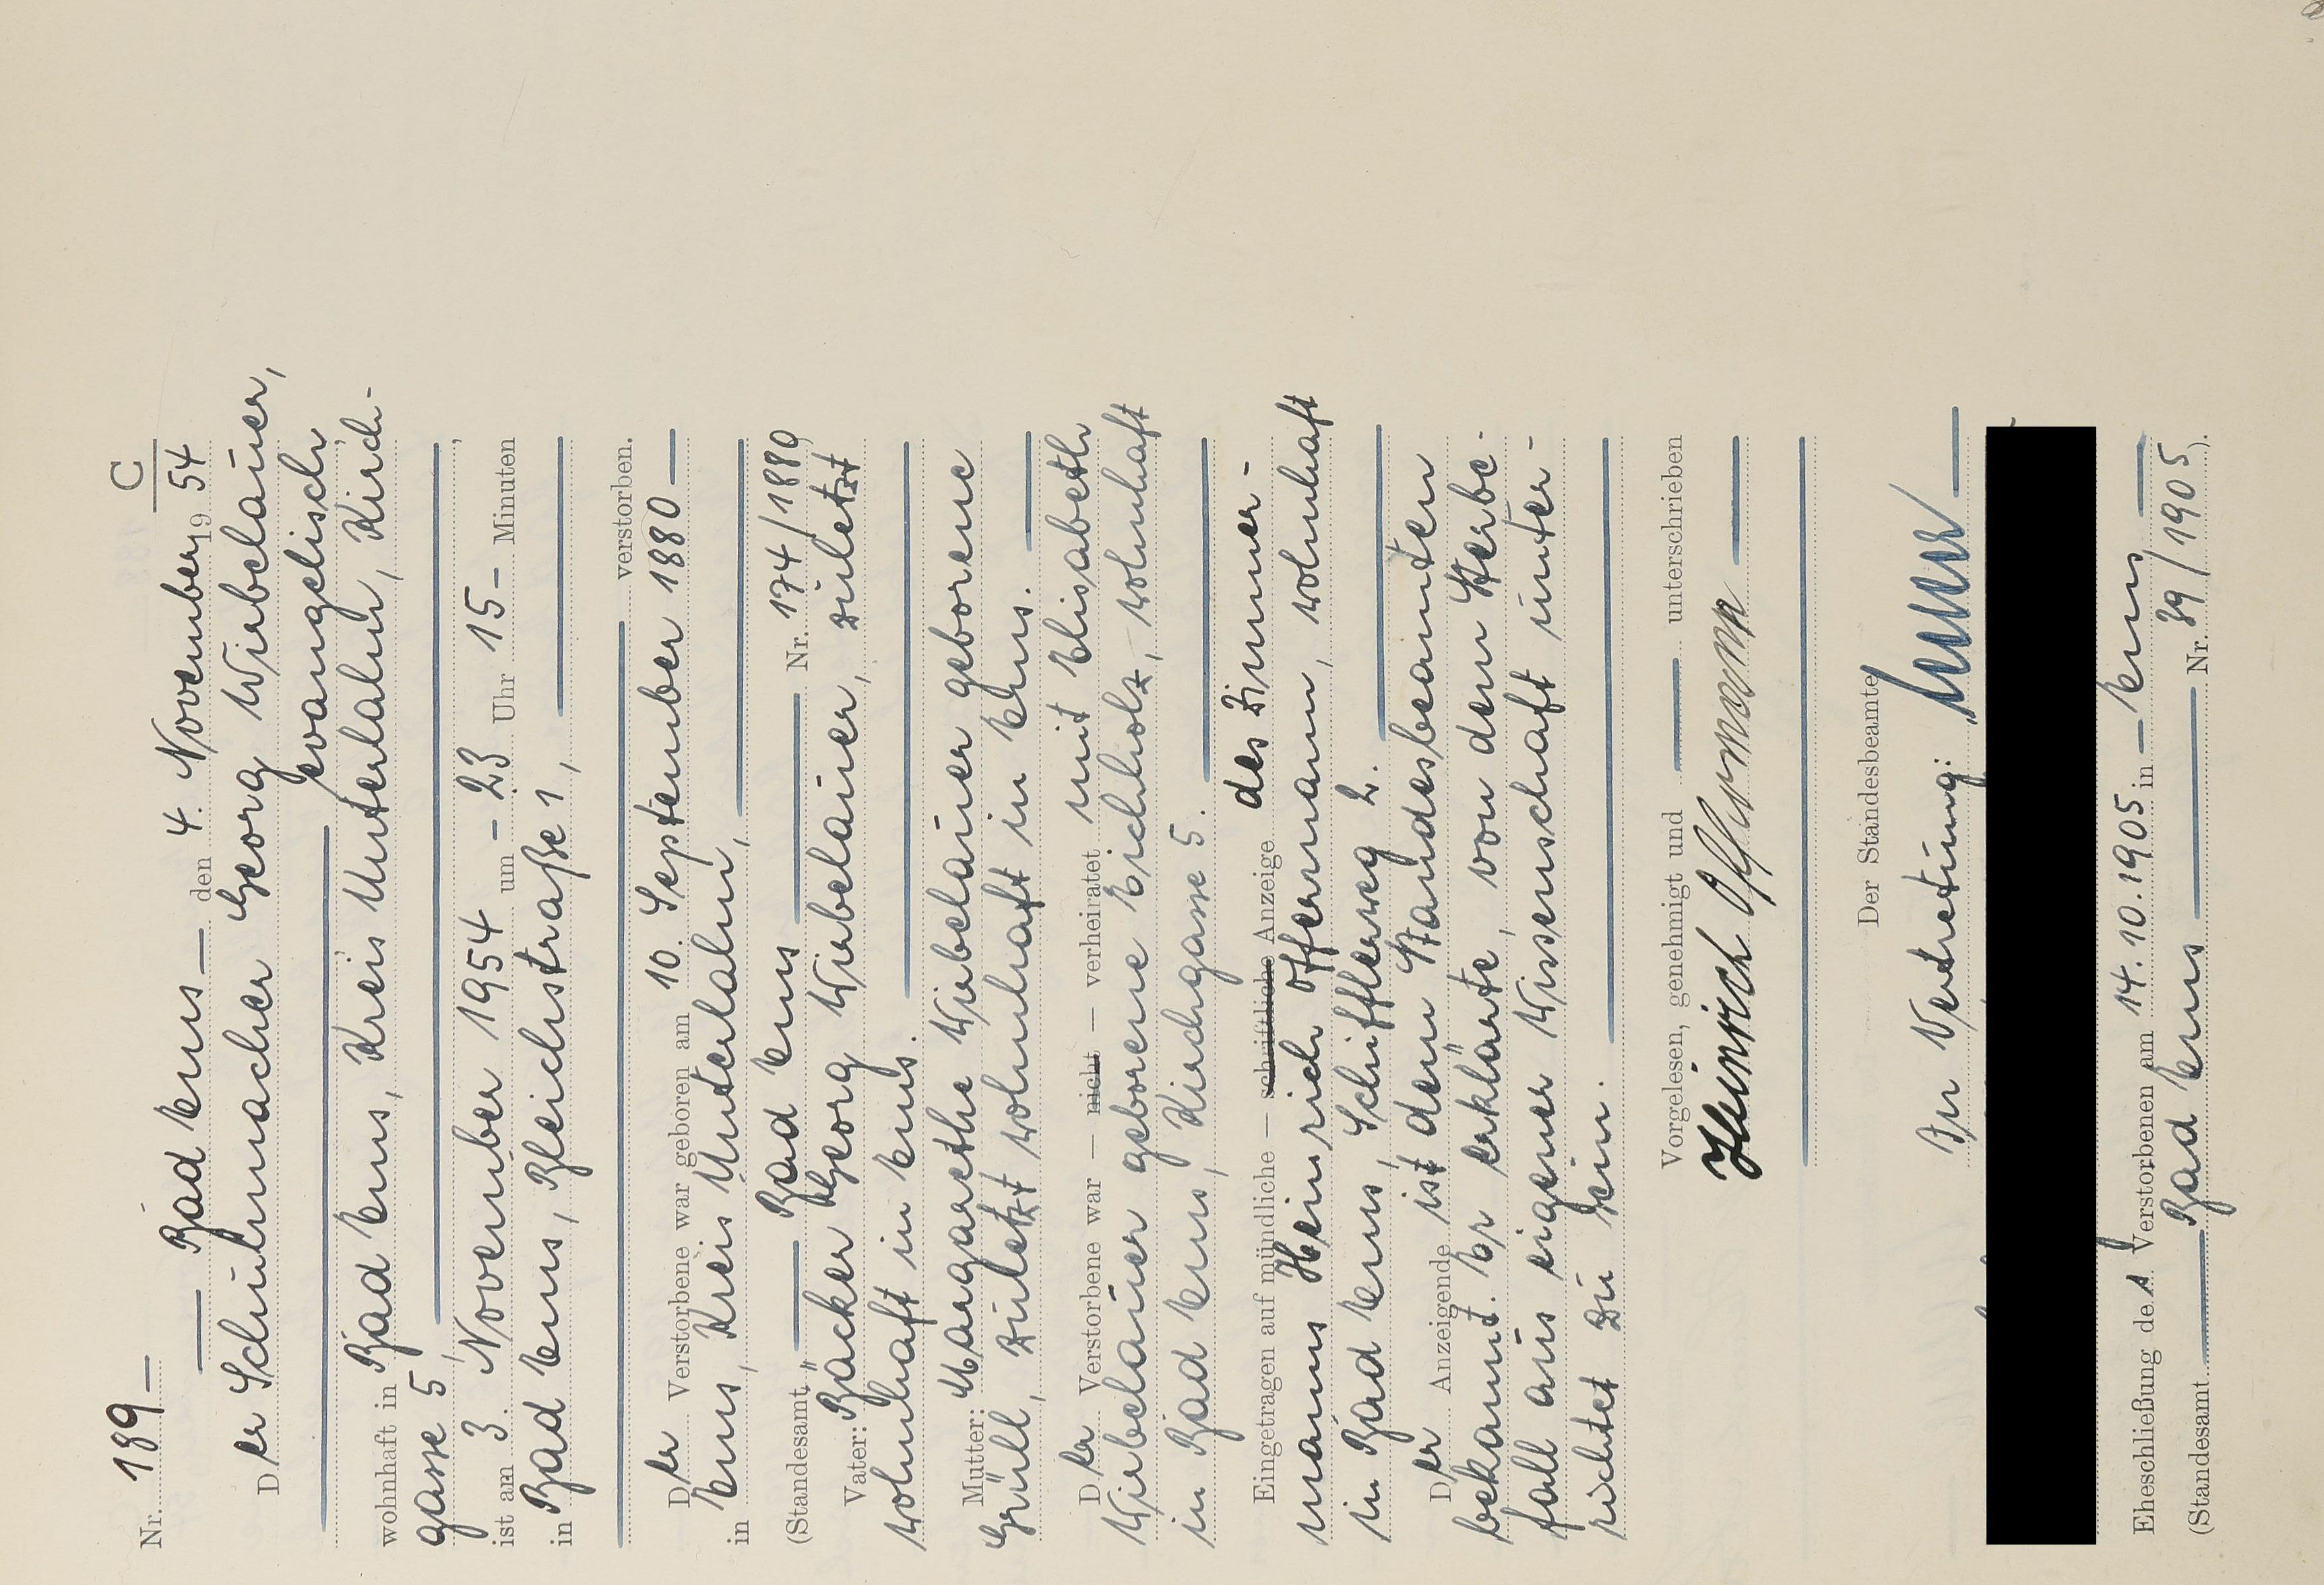 C
Nr. 189
Bad Ems den 4. November 1954
Der Schuhmacher Georg Wiebelauer,
evangelisch
wohnhaft in Bad Ems, Kreis Unterlahn, Kirch-
gasse 5,
ist am 3. November 1954 um 23 Uhr 15 Minuten
in Bad Ems, Bleichstraße 1,
verstorben.
Der Verstorbene war geboren am 10. September 1880
in Ems, Kreis Unterlahn,
(Standesamt „ Bad Ems Nr. 174/1880
Vater: Bäcker Georg Wiebelauer, zuletzt
wohnhaft in Ems.
Mutter: Margarethe Wiebelauer geborene
Grüll, zuletzt wohnhaft in Ems.
Der Verstorbene war — nicht — verheiratet mit Elisabeth
Wiebelauer geborene Eichholz, wohnhaft
in Bad Ems, Kirchgasse 5.
Eingetragen auf mündliche — schriftliche Anzeige des Zimmer-
manns Heinrich Offermann, wohnhaft
in Bad Ems, Schifflerweg 2.
Der Anzeigende ist dem Standesbeamten
bekannt. Er erklärte, von dem Sterbe-
fall aus eigener Wissenschaft unter-
richtet zu sein.
Vorgelesen, genehmigt und unterschrieben
Heinrich Offermann
Der Standesbeamte
In Vertretung:
Eheschließung des Verstorbenen am 14.10.1905 in Ems
(Standesamt Bad Ems Nr. 39/1905).